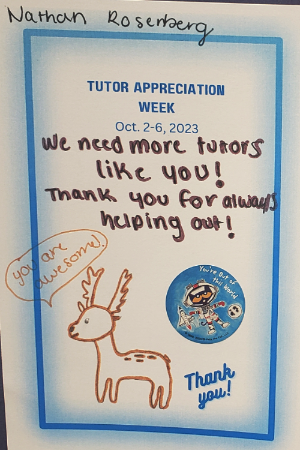 Nathan Rosenberg
TUTOR APPRECIATION
WEEK
Oct. 2-6, 2023
We need more tutors
like you!
Thank you for always
helping out!
you are
awesome!
You're Out of
this World
Thank
you!